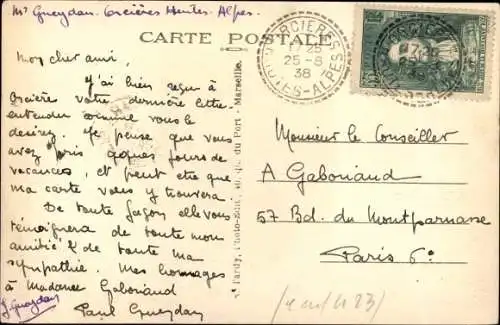 Mr Gueydan. Orcières Hautes. Alpes.
CARTE POSTALE
ORCIERES
25
25-8
38
HTES-ALPES
Mon cher ami,
J'ai bien reçu à
Orcière votre dernière lettre
entendu comme vous le
désirez. Je pense que vous
avez pris qques jours de
vacances, et peut être que
ma carte vous y trouvera
De toute façon elle vous
témoignera de toute mon
amitié & de toute ma
sympathie. Mes hommages
à Madame Gaboriaud
Paul Gueydan
J Gueydan
Pardy, Photo-Edit., du Port - Marseille.
Monsieur le Conseiller
A Gaboriaud
57 Bd. du Montparnasse
Paris 6e